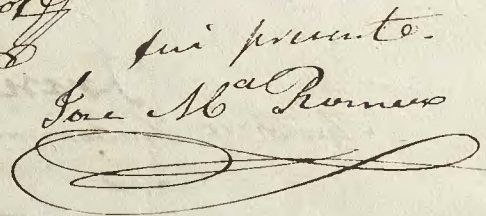 fui presente.
Jose Mª Romero